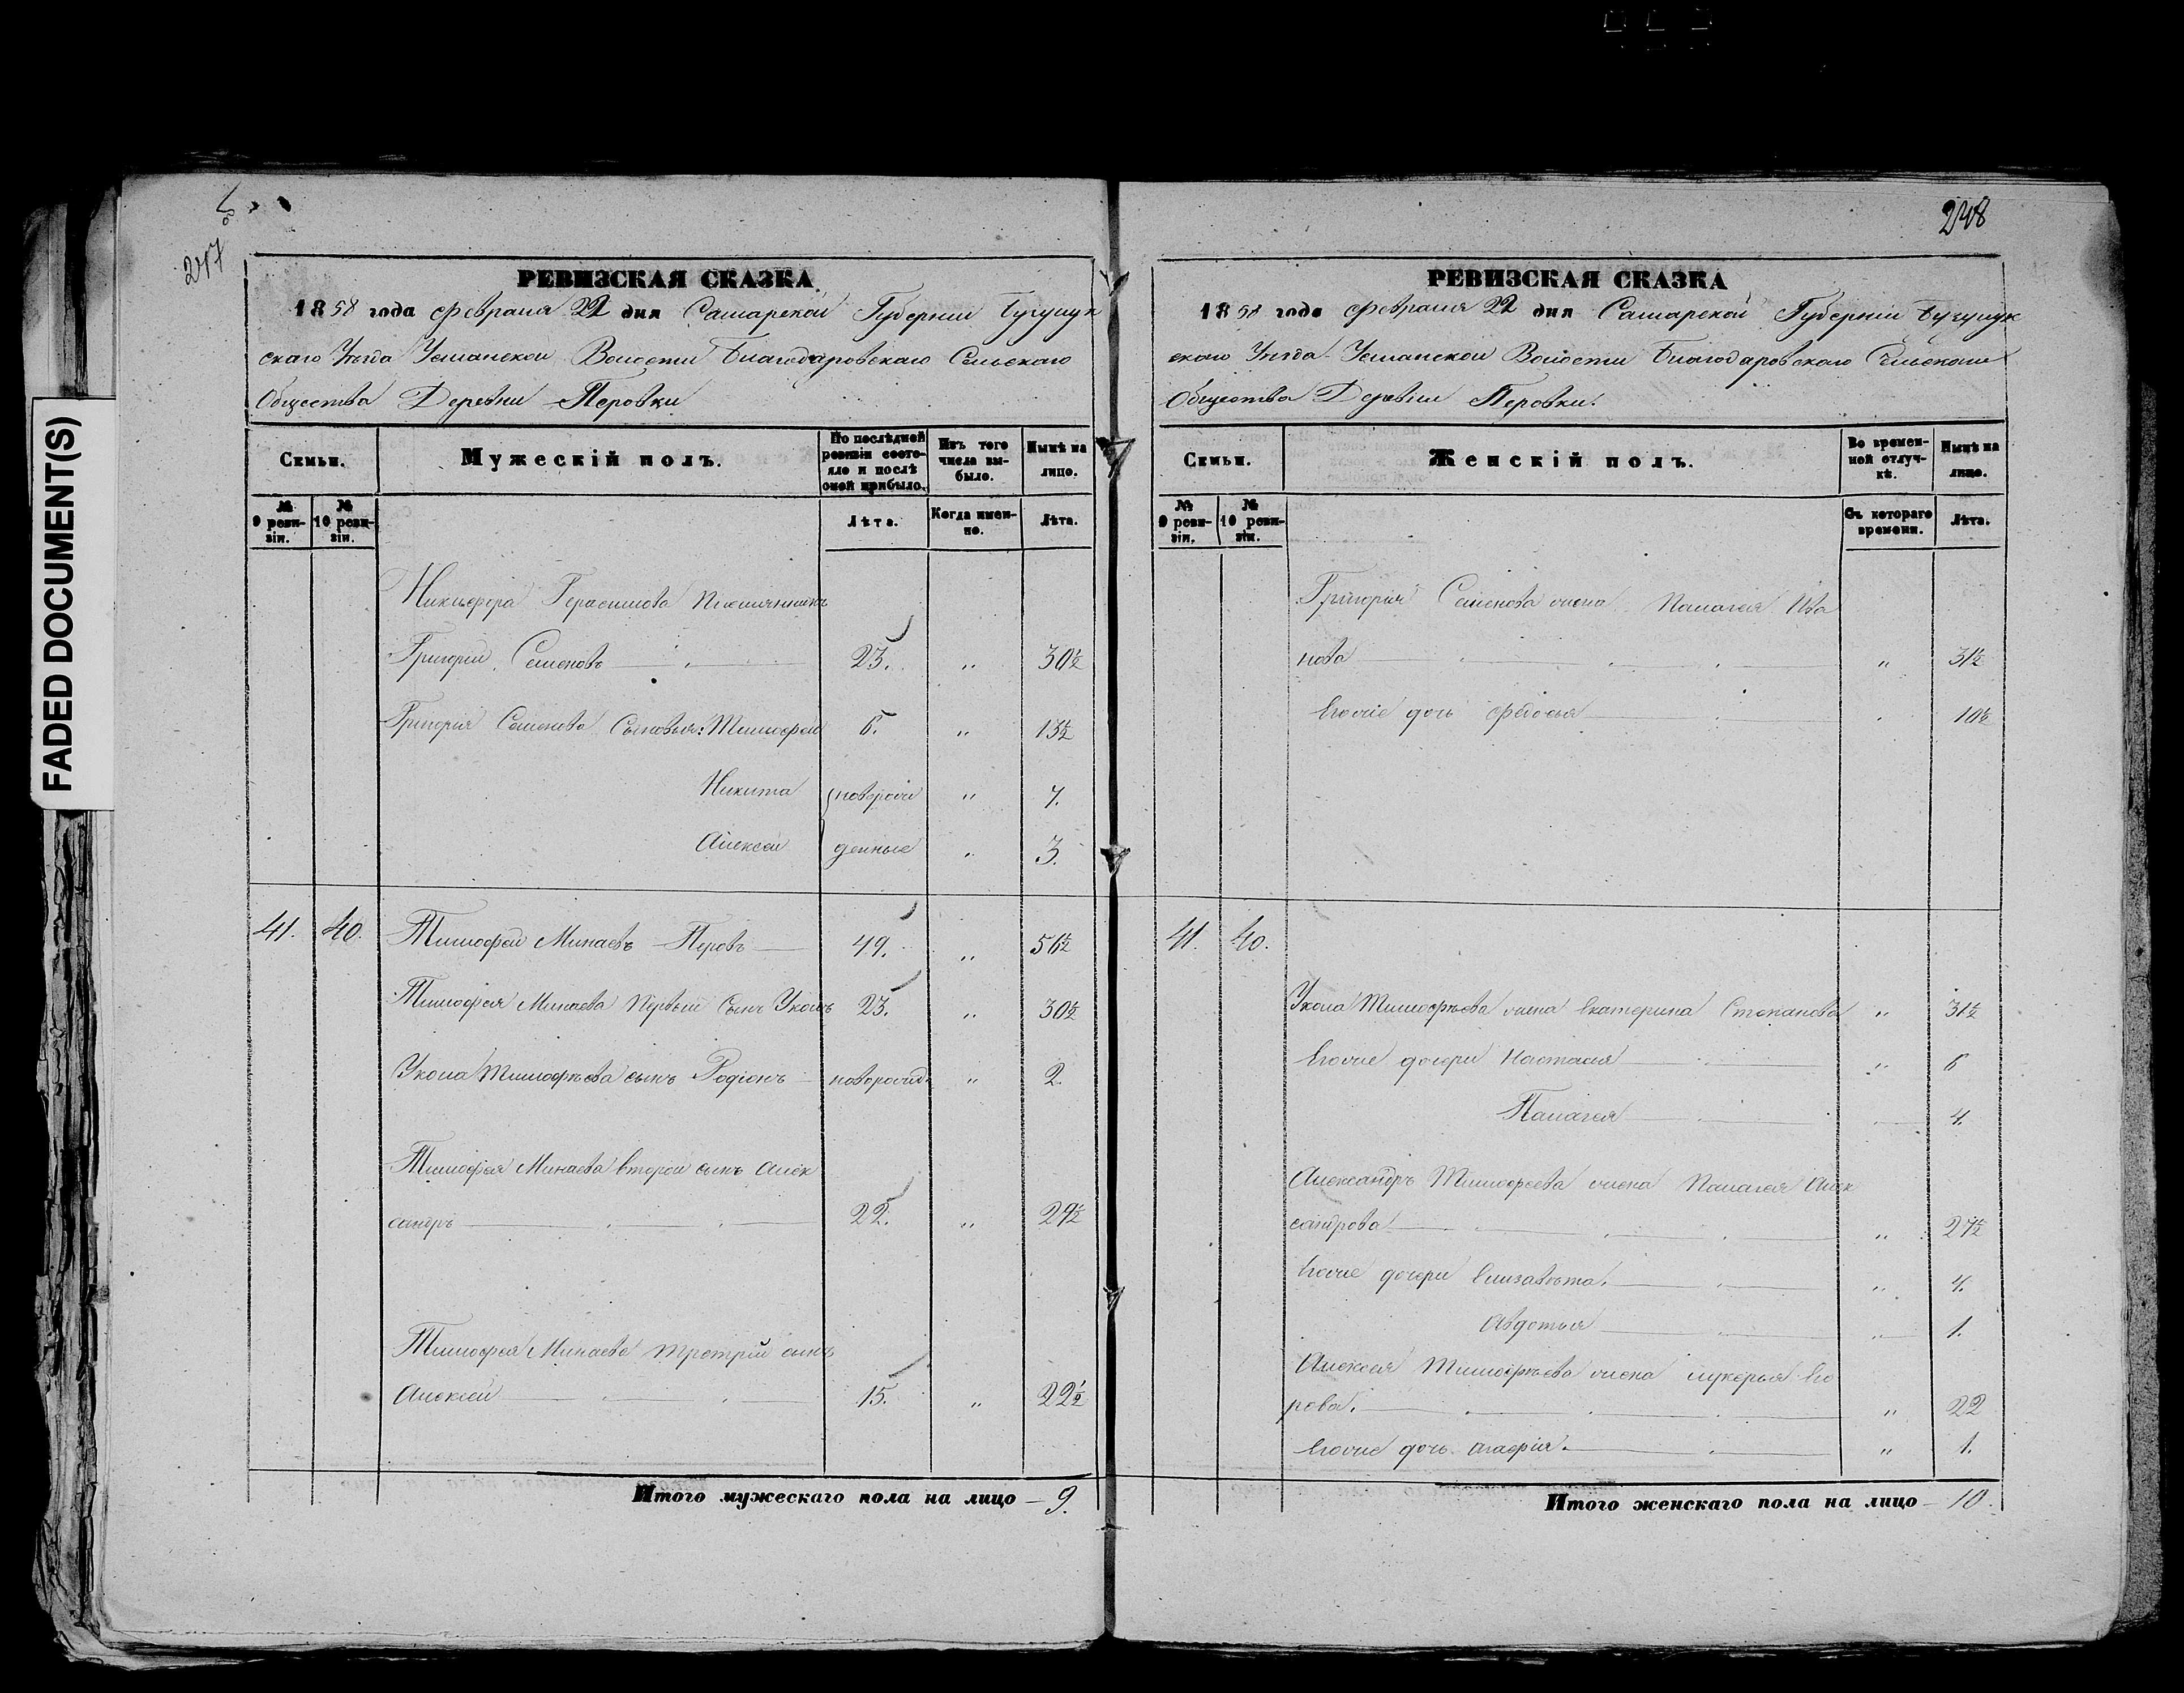 FADED DOCUMENT(S)
247
РЕВИЗСКАЯ СКАЗКА.
1858 года Февраля 22 дня Самарской Губернии Бугурук
скаго Уѣзда Усманской Волости Благодаровскаго Сельскаго
Общества Деревни Перовки
Семьи.
Мужескій полъ.
По послѣдней ревизіи состояло и послѣ оной прибыло.
Изъ того числа выбыло.
Нынѣ на лицо.
№ 9 ревизіи.
№ 10 ревизіи.
Лѣта.
Когда именно.
Лѣта.
Никифора Герасимова племянникъ
Григорій Семеновъ 23. " 30½
Григорія Семенова Сыновья: Тимофей 6. " 13½
Никита новорож " 7.
Алексей денные " 3.
41. 40. Тимофей Минаевъ Перовъ 49. " 56½
Тимофея Минаева Первый Сынъ 23. " 30½
Тимофѣева сынъ Родіонъ новорожд. " 2.
Тимофея Минаева второй сынъ Алек
сандръ 22. " 29½
Тимофея Минаева третрій сынъ
Алексей 15. " 22½
Итого мужескаго пола на лицо 9.
248
РЕВИЗСКАЯ СКАЗКА
1858 года Февраля 22 дня Самарской Губерніи Бугурук
скаго Уѣзда Усманской Волости Благодаровскаго Сельскаго
Общества Деревни Перовки.
Семьи.
Женскій полъ.
Во временной отлучкѣ.
Нынѣ на лицо.
№ 9 ревизіи.
№ 10 ревизіи.
Съ котораго времени.
Лѣта.
Григорія Семенова жена Палагея Ива
нова " 31½
Егожіе дочь Федосья " 10½
41. 40.
Тимофѣева жена Екатерина Степанова " 31½
Егоже дочери Настасия " 6
Палагея 4.
Александръ Тимофеева жена Палагея Алек
сандрова " 27½
Егоже дочери Елизавета. " 4.
Авдотья " 1.
Алексея Тимофѣева жена лукерья Его
рова. " 22
Егоже дочь Агафія. " 1.
Итого женскаго пола на лицо 10.